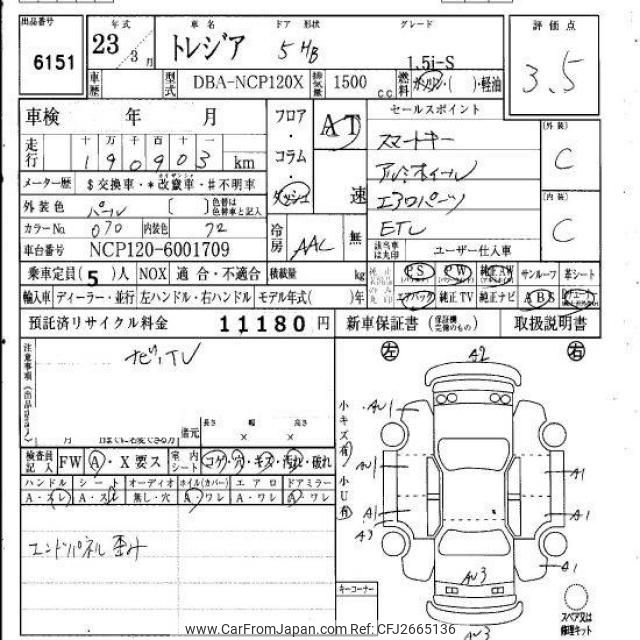 出品番号 年式 車名 ドア 形状 グレード 評価点
6151 23 3月 トレジア 5 HB 1.5i-S 3.5
車歴 型式 DBA-NCP120X 排気量 1500 cc 燃料 ガソリン・( )・軽油
車検 年 月 フロア・コラム・ダッシュ AT 速 セールスポイント 〔外装〕 C
走行 十 万 千 百 十 一 スマートキー
190903 km アルミホイール
メーター歴 $交換車・*改竄車・#不明車 エアロパーツ 〔内装〕 C
外装色 パール 〔 〕 色替は色替車と記入 ETC
カラーNo. 070 内装色 72 冷房 AAC 無 該当車は丸印 ユーザー仕入車
車台番号 NCP120-6001709
乗車定員(5)人 NOX 適合・不適合 積載量 kg PS PW 純正AW サンルーフ 革シート
輸入車 ディーラー・並行 左ハンドル・右ハンドル モデル年式( )年 エアバック 純正TV 純正ナビ ABS
預託済リサイクル料金 11180 円 新車保証書 (保証継続完備のもの) 取扱説明書
注意事項 ナビ、TV 左 右
A2
小キズ有 AU1
AU1 A1
小U有 A1 A1
A3
A1
AU3
AU3
月 日までに名変できる方 還元 長さ × 幅 × 高さ
検査員記入 FW A・X要ス 室内シート コゲ・穴・キズ・汚れ・破れ
ハンドル シート オーディオ ホイル(カバー) エアロ ドアミラー
A・スレ A・スレ 無し・穴 A・ワレ A・ワレ A・ワレ
エンドパネル歪み
キーコーナー スペア又は修理キット
www.CarFromJapan.com Ref: CFJ2665136